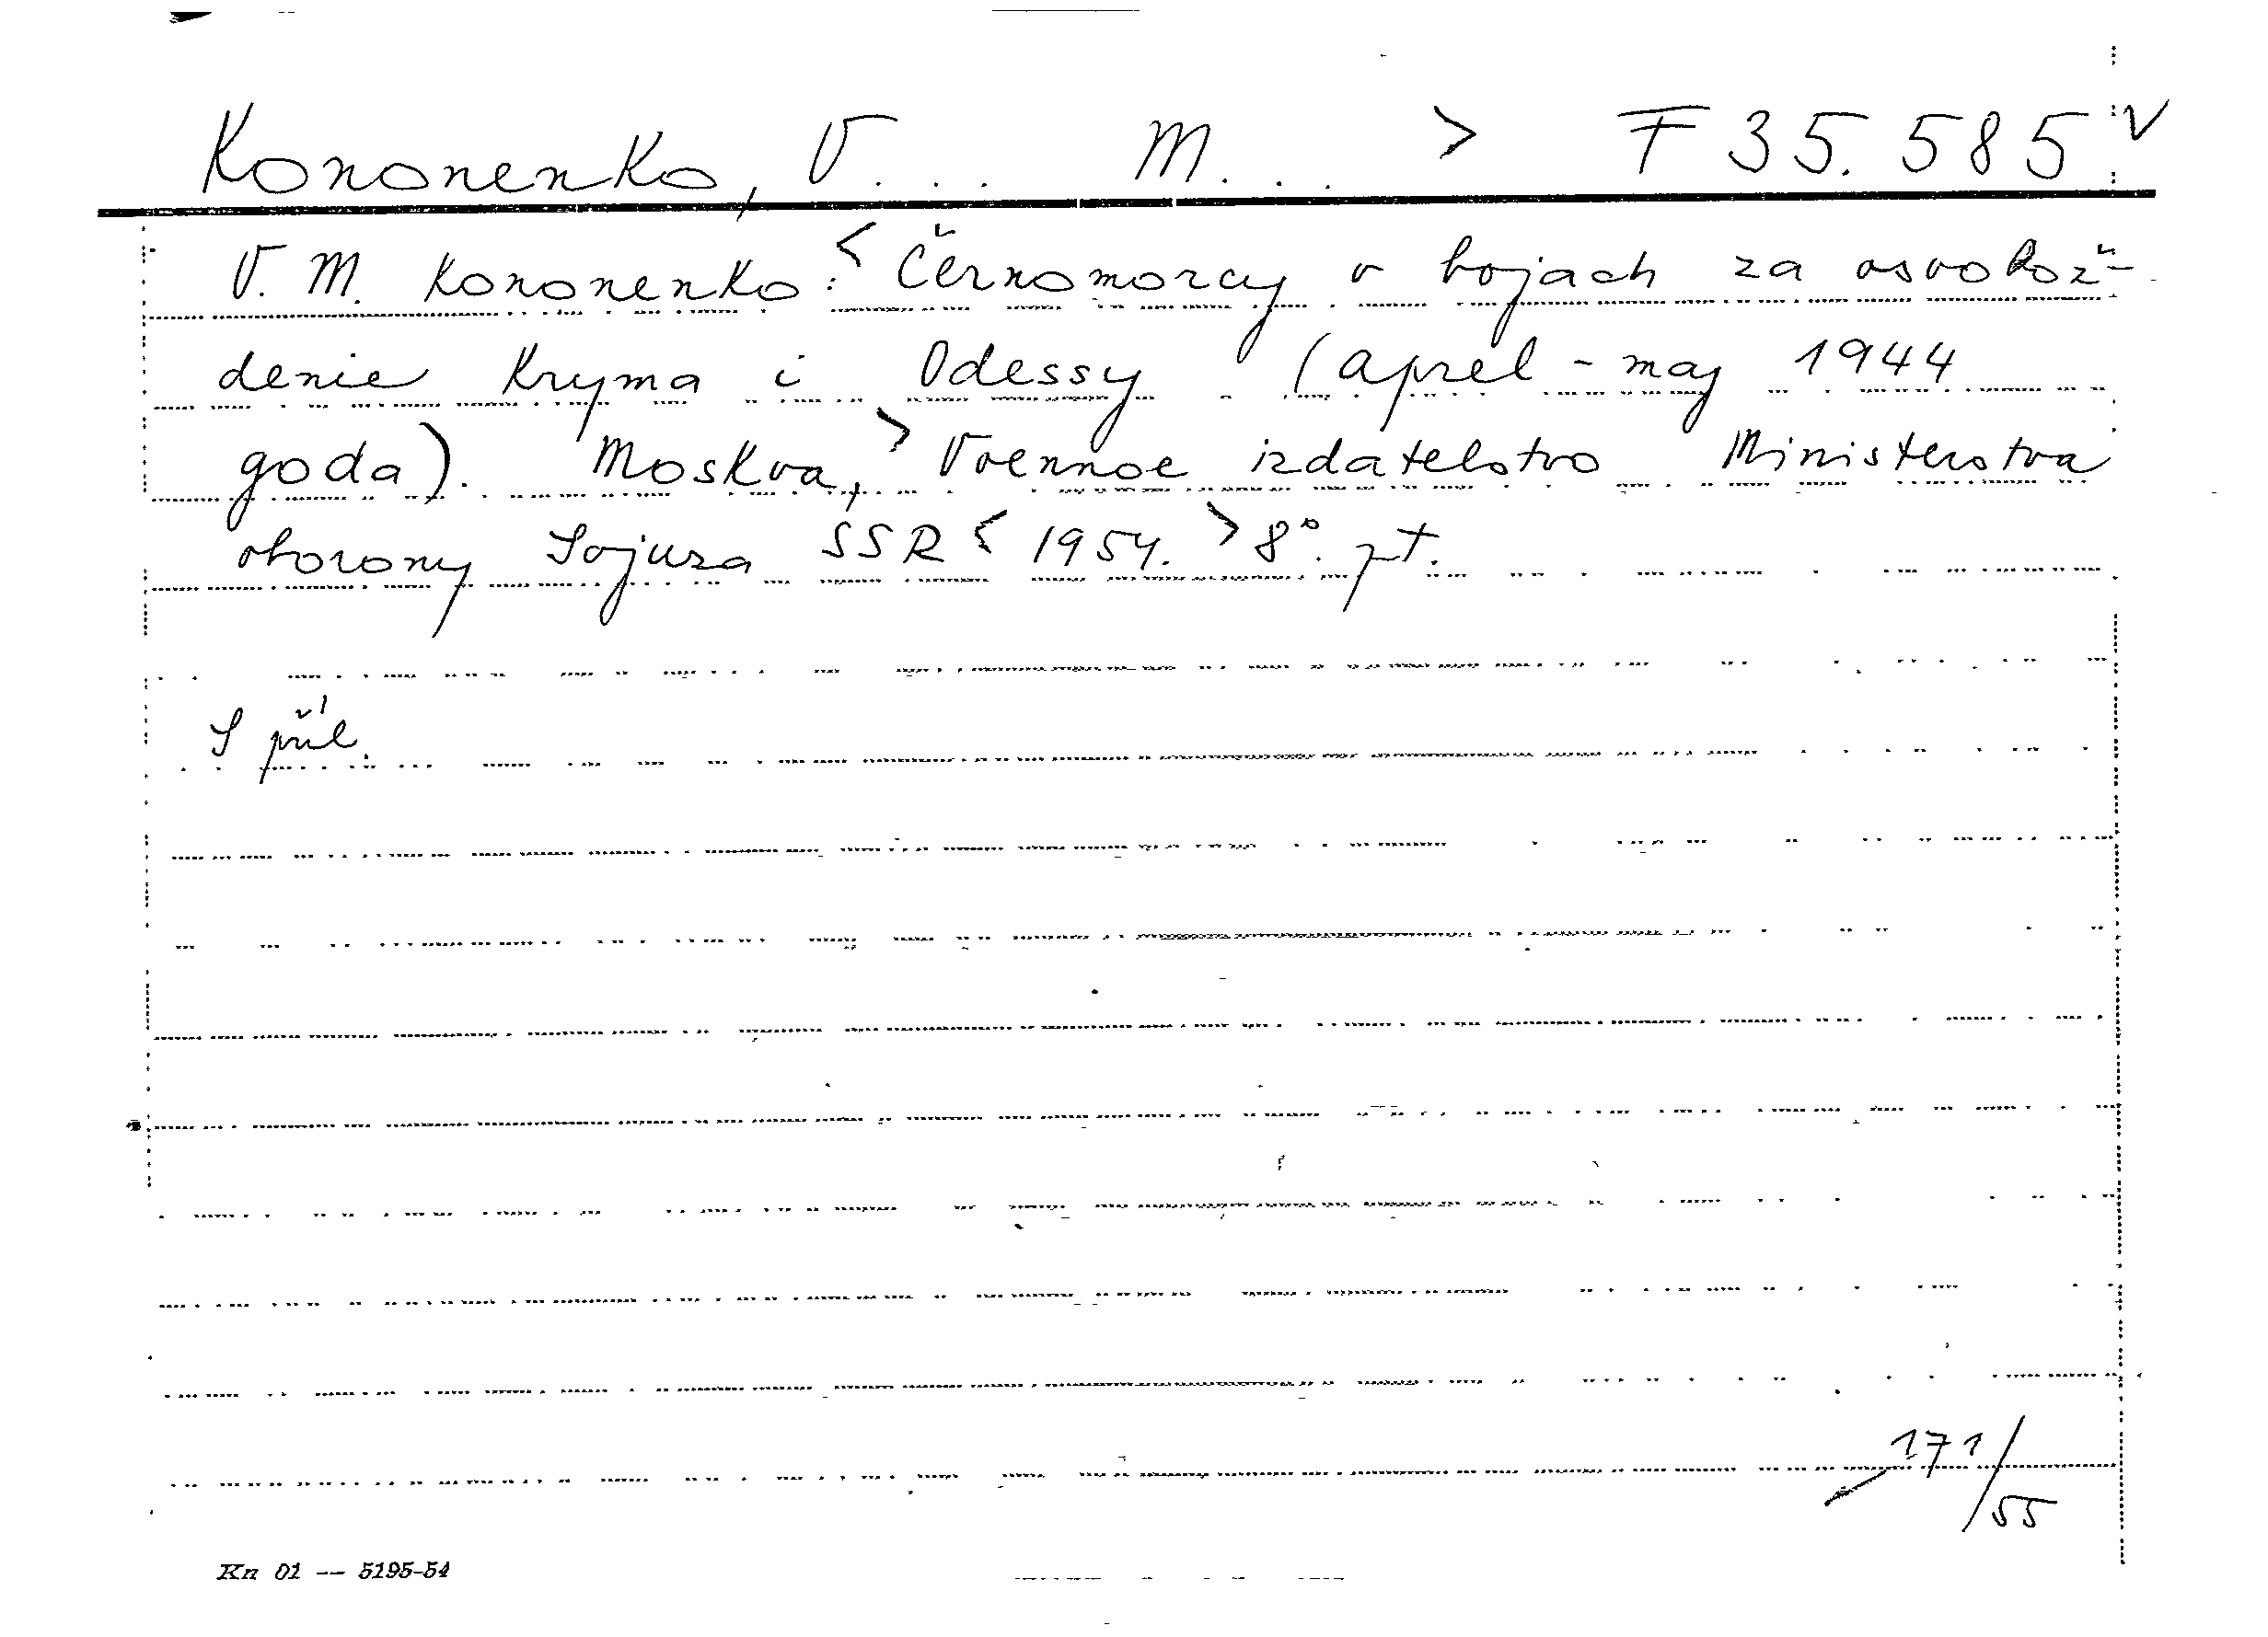 Kononenko, V... M... > F 35.585 v
V. M. Kononenko: < Černomorcy v bojach za osvobož-
denie Kryma i Odessy (aprel - maj 1944
goda). Moskva, > Voennoe izdatelstvo Ministerstva
oborony Sojuza SSR < 1954. > 8°. pt.
S příl.
171/55
Kn 01 -- 5195-54